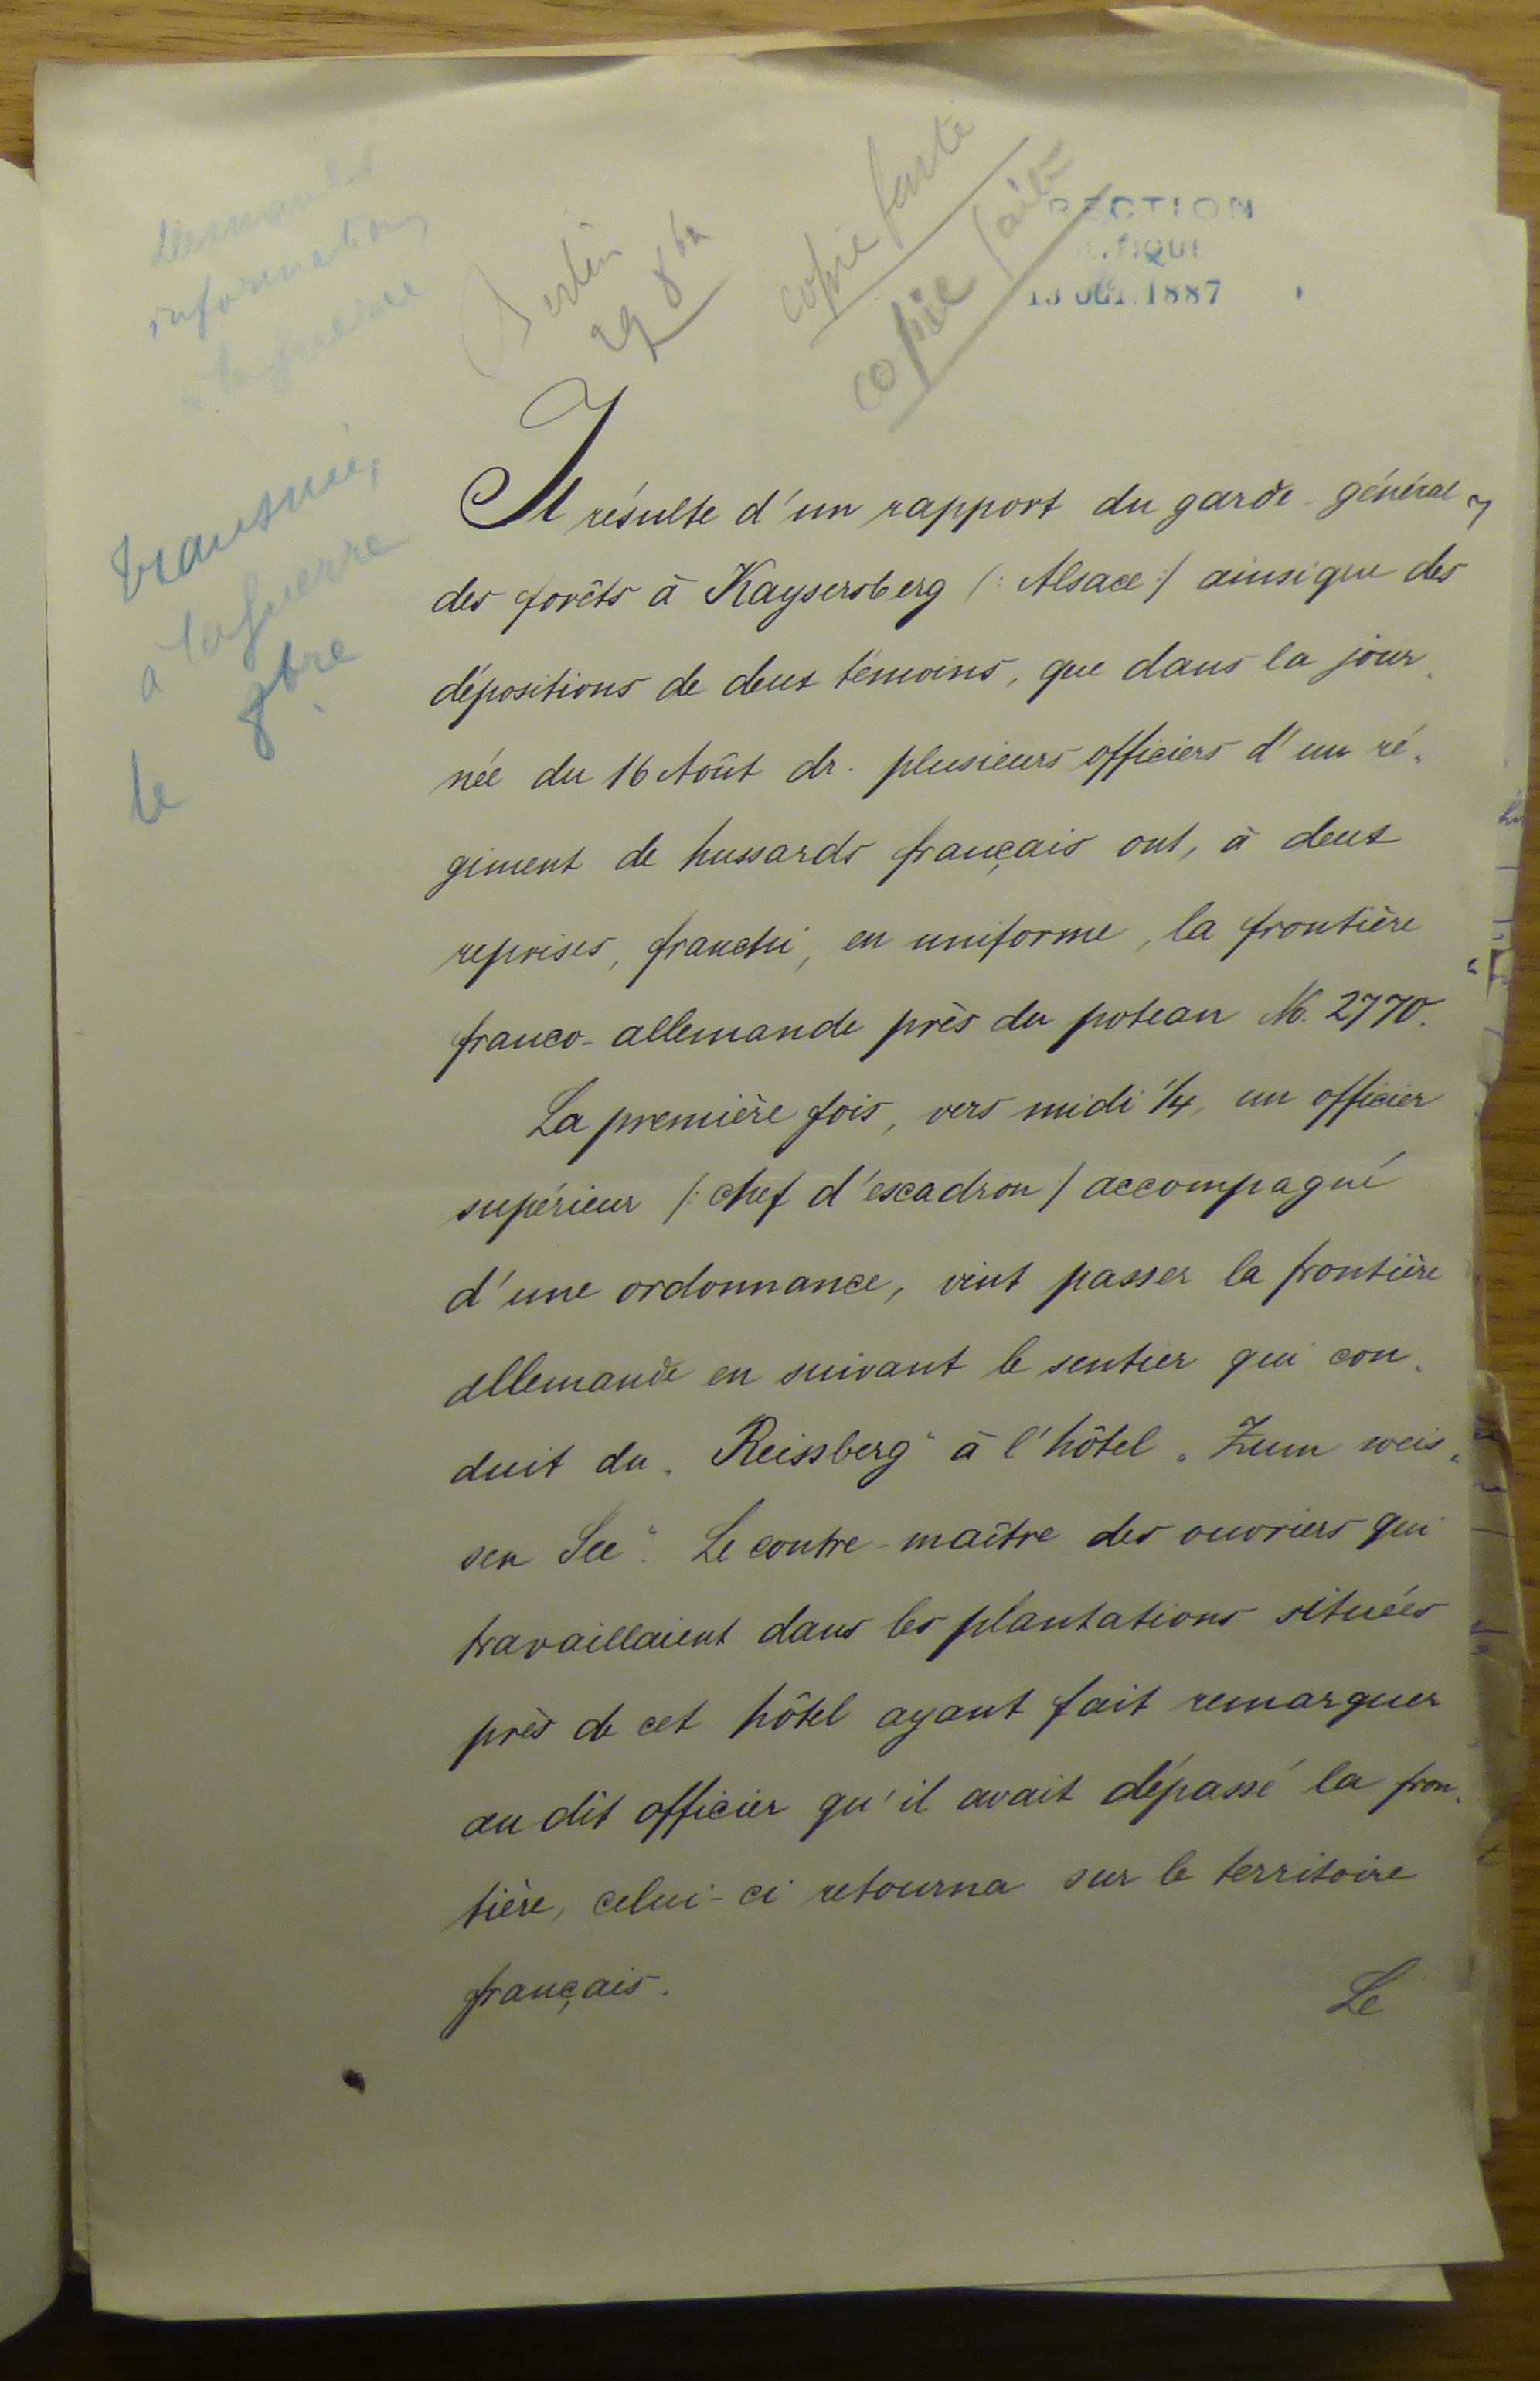 demander
informations
à la guerre
Berlin
29 8bre
copie faite
copie faite
RECTION
TIQUE
13 OCT. 1887
transmis
à la guerre
le 8bre
Il résulte d'un rapport du garde-général
des forêts à Kaysersberg (: Alsace :) ainsi que des
dépositions de deux témoins, que dans la jour-
née du 16 Août dr. plusieurs officiers d'un ré-
giment de hussards français ont, à deux
reprises, franchi, en uniforme, la frontière
franco-allemande près du poteau No. 2770.
La première fois, vers midi 1/4, un officier
supérieur (: chef d'escadron :) accompagné
d'une ordonnance, vint passer la frontière
allemande en suivant le sentier qui con-
duit du „Reissberg“ à l'hôtel „Zum weis-
sen See“. Le contre-maître des ouvriers qui
travaillaient dans les plantations situées
près de cet hôtel ayant fait remarquer
au dit officier qu'il avait dépassé la fron-
tière, celui-ci retourna sur le territoire
français.
Le